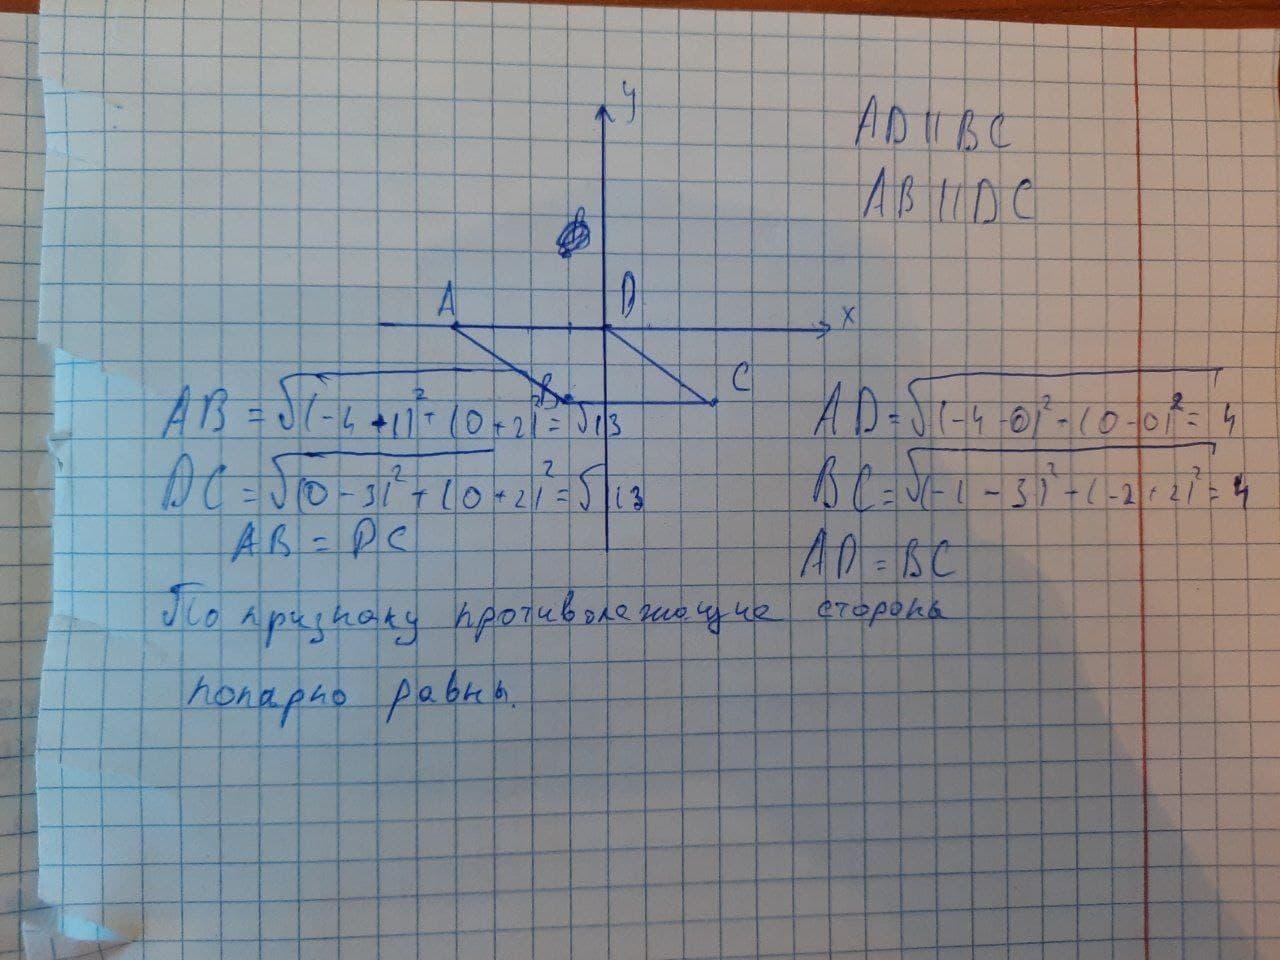 y
AD || BC
AB || DC
A
D
x
B
C
AB = √(-4+1)²+(0+2)² = √13
AD = √(-4-0)²-(0-0)² = 4
DC = √(0-3)²+(0+2)² = √13
BC = √(-1-3)²+(-2+2)² = 4
AB = DC
AD = BC
По признаку противолежащие стороны
попарно равны.